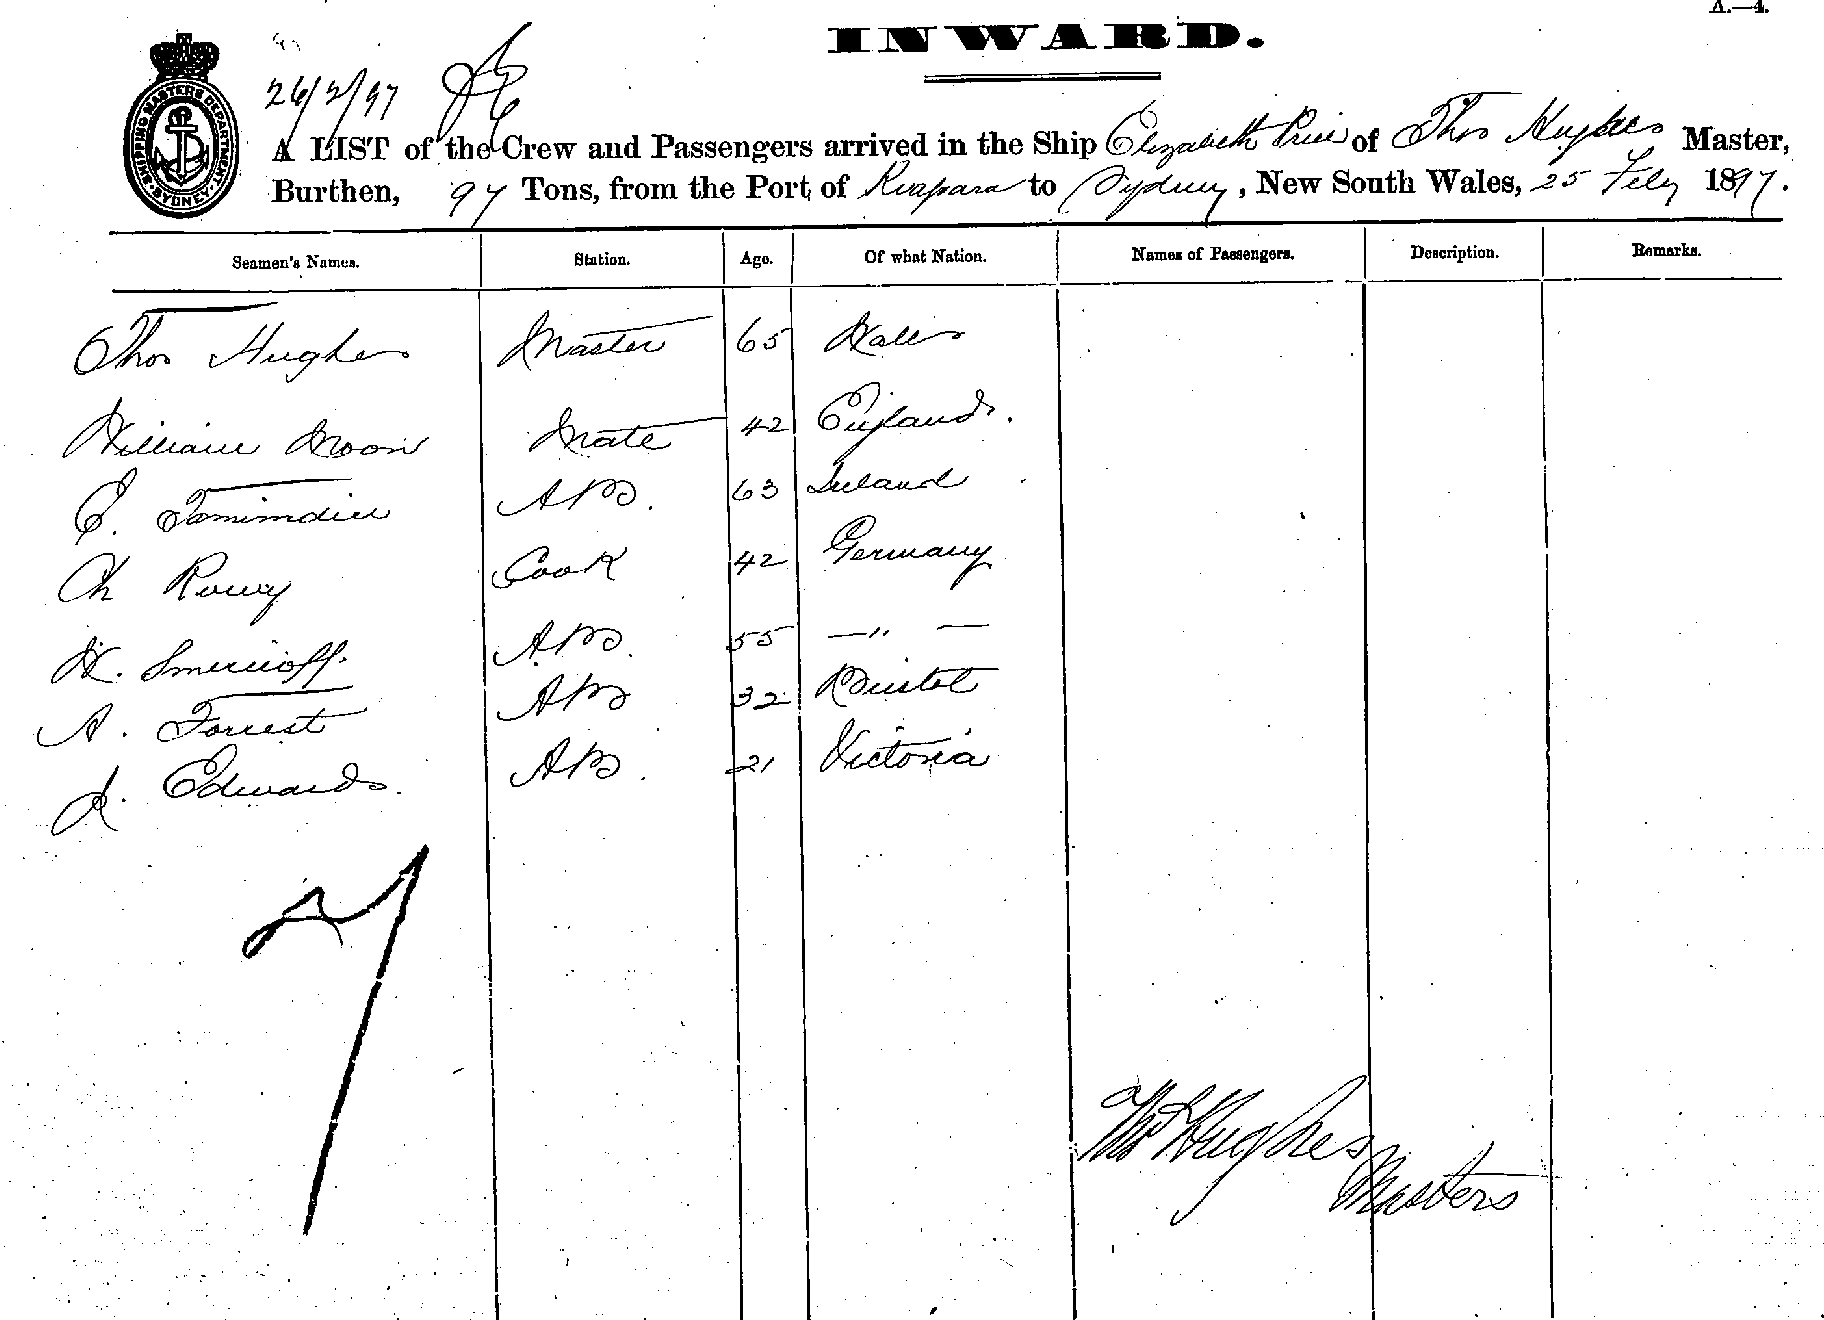 A.—4.
INWARD.
SHIPPING MASTERS DEPARTMENT SYDNEY
26/2/97
A LIST of the Crew and Passengers arrived in the Ship Elizabeth Price of Thos Hughes Master,
Burthen, 97 Tons, from the Port of to Sydney, New South Wales, 25 Feby 1897.
Seamen's Names. Station. Age. Of what Nation. Names of Passengers. Description. Remarks.
Thos Hughes Master 65 Wales
William Moon Mate 42 England.
E. AB. 63 Ireland
Ch Cook 42 Germany
AB. 55 —"—
A. Forrest AB 32 Bristol
J. Edwards. AB. 21 Victoria
7
Thos Hughes
Master